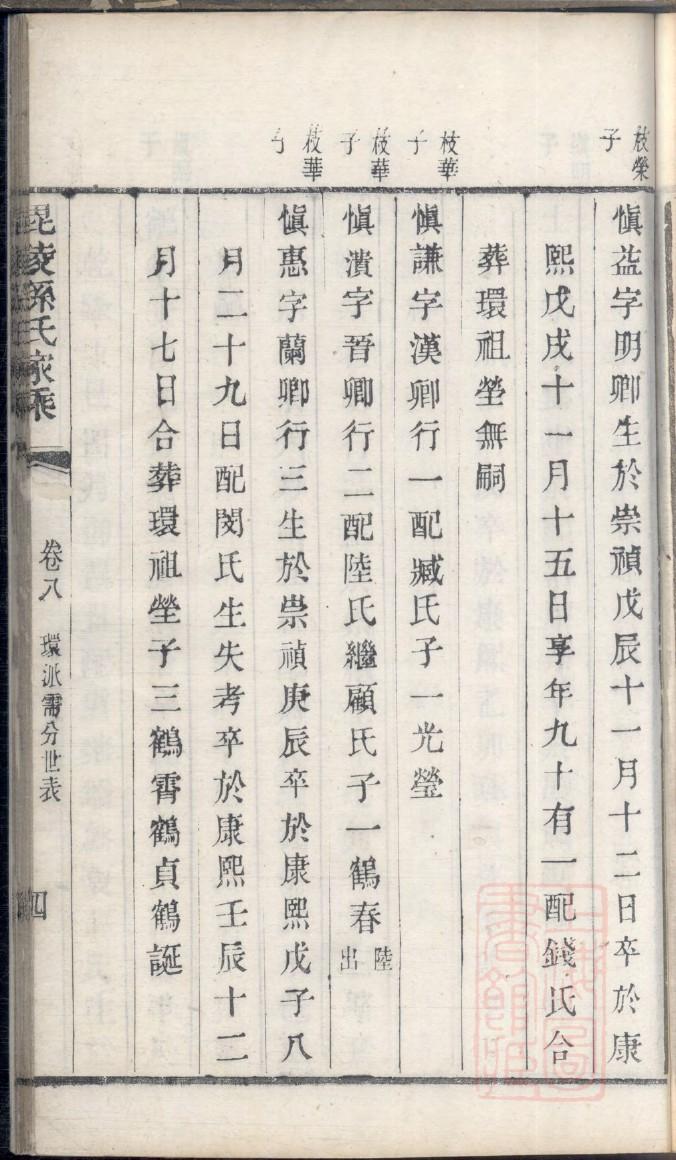 枝榮子
慎益字明卿生於崇禎戊辰十一月十二日卒於康
熙戊戌十一月十五日享年九十有一配錢氏合
葬環祖塋無嗣
枝華子
慎謙字漢卿行一配臧氏子一光瑩
枝華子
慎潰字晉卿行二配陸氏繼顧氏子一鶴春陸出
枝華子
慎惠字蘭卿行三生於崇禎庚辰卒於康熙戊子八
月二十九日配閔氏生失考卒於康熙壬辰十二
月十七日合葬環祖塋子三鶴霄鶴貞鶴誕
毘陵孫氏家乘
卷八
環派需分世表
四